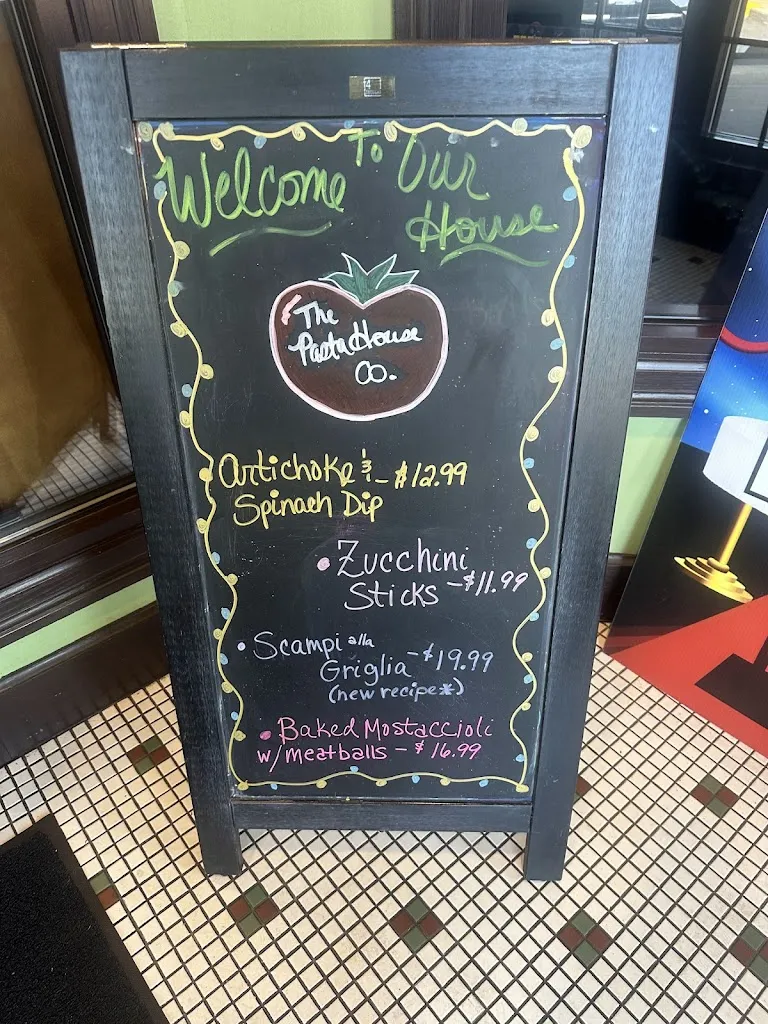 Welcome To Our
House
The
Pasta House
Co.
Artichoke & - $12.99
Spinach Dip
• Zucchini
Sticks - $11.99
• Scampi alla
Griglia - $19.99
(new recipe*)
• Baked Mostaccioli
w/meatballs - $16.99